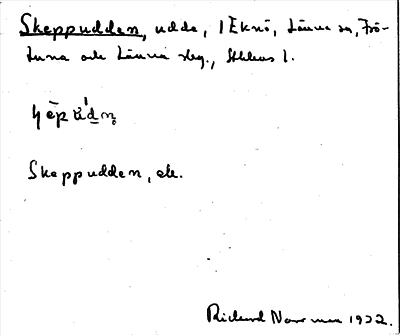 Skeppudden, udde, i Eknö, Länna sn, Frö-
tuna och Länna slg., Sthlms l.
Skeppudden, ele.
Richard Norrman 1932.